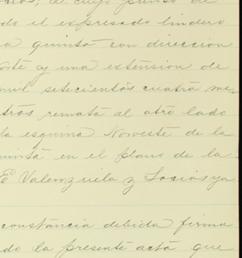 de cuyo punto de
do el expresado lindero
a quinta con direccion
orte y una extension de
mil setecientos cuatro me
tros remata al otro lado
la esquina Noroeste de la
uinta en el plano de la
E. Valenzuela y Socios ya
constancia debida firma
do la presente acta que